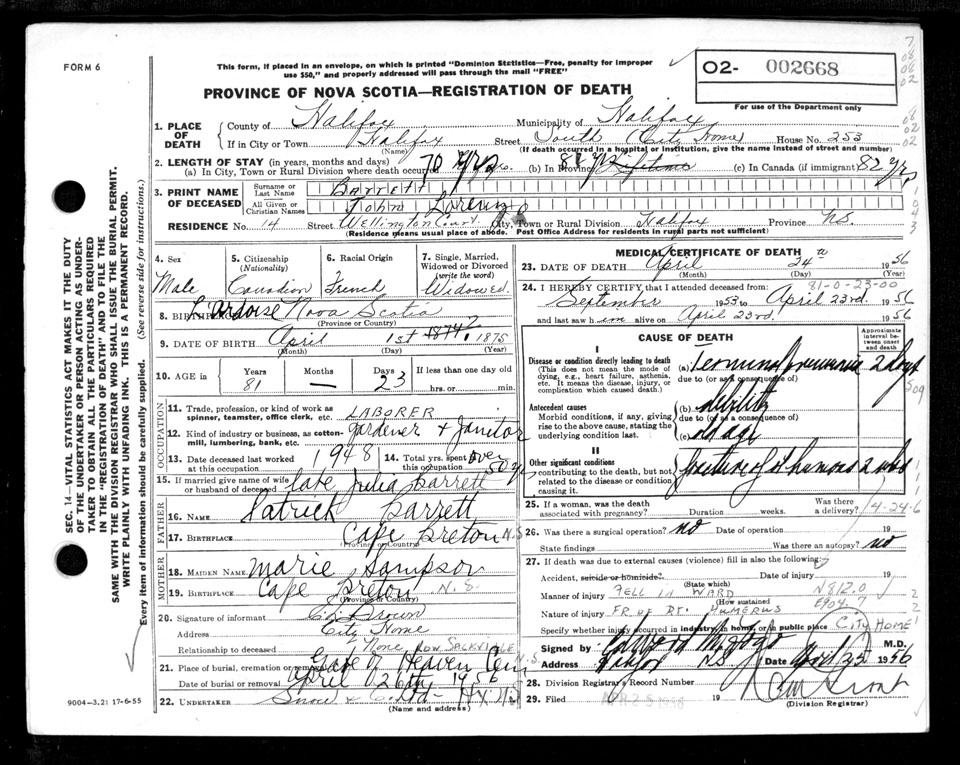 FORM 6
This form, if placed in an envelope, on which is printed "Dominion Statistics—Free, penalty for improper
use $50," and properly addressed will pass through the mail "FREE"
O2- 002668
PROVINCE OF NOVA SCOTIA—REGISTRATION OF DEATH
For use of the Department only
1. PLACE OF DEATH
County of Halifax Municipality of Halifax
If in City or Town Halifax Street South (City Home) House No. 253
(Name) (If death occurred in a hospital or institution, give the name instead of street and number)
2. LENGTH OF STAY (in years, months and days)
(a) In City, Town or Rural Division where death occurred 70 yrs (b) In Province 81 yrs Lifetime (c) In Canada (if immigrant) 82 yrs
3. PRINT NAME OF DECEASED
Surname or Last Name BARRETT
All Given or Christian Names John Lorenzo
RESIDENCE No. 14 Street Wellington Court City, Town or Rural Division Halifax Province N.S.
(Residence means usual place of abode. Post Office Address for residents in rural parts not sufficient)
4. Sex Male
5. Citizenship (Nationality) Canadian
6. Racial Origin French
7. Single, Married, Widowed or Divorced (write the word) Widowed.
8. BIRTHPLACE L'Ardoise Nova Scotia
(Province or Country)
9. DATE OF BIRTH April 1st 1874? 1875
(Month) (Day) (Year)
10. AGE in Years 81 Months — Days 23 If less than one day old hrs. or min.
OCCUPATION
11. Trade, profession, or kind of work as spinner, teamster, office clerk, etc. LABORER
12. Kind of industry or business, as cotton-mill, lumbering, bank, etc. Gardener & Janitor
13. Date deceased last worked at this occupation 1948
14. Total yrs. spent in this occupation Over 50 yrs
15. If married give name of wife or husband of deceased late Julia Barrett
FATHER
16. NAME Patrick Barrett
17. BIRTHPLACE Cape Breton N.S.
(Province or Country)
MOTHER
18. MAIDEN NAME Marie Sampson
19. BIRTHPLACE Cape Breton N.S.
(Province or Country)
20. Signature of informant C. Brown
Address City Home
Relationship to deceased None
21. Place of burial, cremation or removal Gate of Heaven Cem Low. Sackville N.S.
Date of burial or removal April 26th 1956
22. UNDERTAKER Snow & Hx N.S.
(Name and address)
MEDICAL CERTIFICATE OF DEATH
23. DATE OF DEATH April 24th 1956
(Month) (Day) (Year)
81-0-23-00
24. I HEREBY CERTIFY that I attended deceased from:
September 1953 to April 23rd. 1956
and last saw him alive on April 23rd 1956
CAUSE OF DEATH
Approximate interval between onset and death
I
Disease or condition directly leading to death
(This does not mean the mode of dying, e.g., heart failure, asthenia, etc. It means the disease, injury, or complication which caused death.)
(a) Terminal pneumonia 2 days
due to (or as a consequence of)
Antecedent causes
Morbid conditions, if any, giving rise to the above cause, stating the underlying condition last.
(b) debility
due to (or as a consequence of)
(c) old age
II
Other significant conditions
contributing to the death, but not related to the disease or condition causing it.
fracture of rt humerus 2 wks
25. If a woman, was the death associated with pregnancy? Duration weeks. Was there a delivery?
4-24-6
26. Was there a surgical operation? no Date of operation 19
State findings Was there an autopsy? no
27. If death was due to external causes (violence) fill in also the following:
Accident, suicide or homicide? Date of injury 19
(State which)
Manner of injury FELL IN WARD N812.0
(How sustained) E904
Nature of injury FR OF RT. HUMERUS
Specify whether injury occurred in industry, in home, or in public place CITY HOME
Signed by M.D.
Address Halifax N.S. Date April 25 1956
28. Division Registrar's Record Number
29. Filed APR 25 1956 19
(Division Registrar)
SEC. 14—VITAL STATISTICS ACT MAKES IT THE DUTY
OF THE UNDERTAKER OR PERSON ACTING AS UNDER-
TAKER TO OBTAIN ALL THE PARTICULARS REQUIRED
IN THE "REGISTRATION OF DEATH" AND TO FILE THE
SAME WITH THE DIVISION REGISTRAR WHO SHALL ISSUE THE BURIAL PERMIT.
WRITE PLAINLY WITH UNFADING INK. THIS IS A PERMANENT RECORD.
Every item of information should be carefully supplied. (See reverse side for instructions.)
9004-3.2: 17-6-55